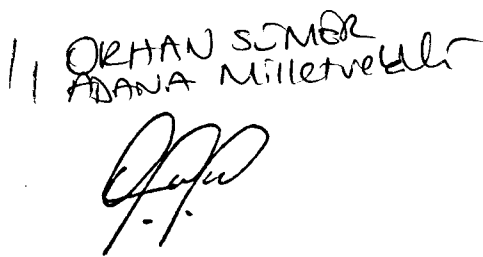 11 ORHAN SÜMER
ADANA Milletvekili